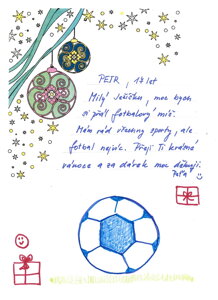 PETR, 13 let
Milý Ježíšku, moc bych
si přál fotbalový míč.
Mám rád všechny sporty, ale
fotbal nejvíc. Přeji Ti krásné
vánoce a za dárek moc děkuji.
Péťa